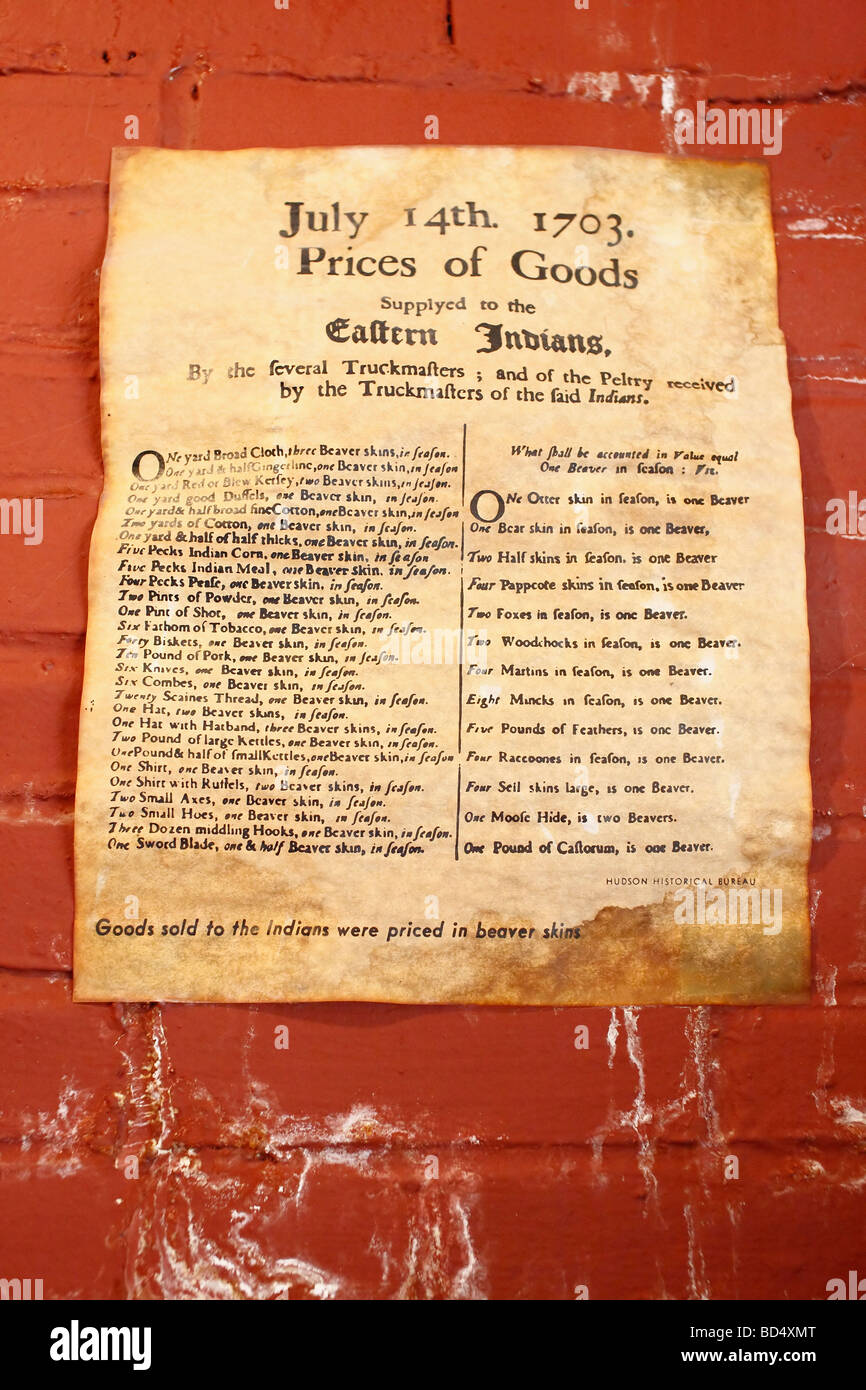 July 14th. 1703.
Prices of Goods
Supplyed to the
Eaſtern Indians,
By the ſeveral Truckmaſters ; and of the Peltry received
by the Truckmaſters of the ſaid Indians.
ONe yard Broad Cloth, three Beaver skins, in ſeaſon.
One yard & half Gingerline, one Beaver skin, in ſeaſon
One yard Red or Blew Kerſey, two Beaver skins, in ſeaſon.
One yard good Duffels, one Beaver skin, in ſeaſon.
One yard & half broad fine Cotton, one Beaver skin, in ſeaſon
Two yards of Cotton, one Beaver skin, in ſeaſon.
One yard & half of half thicks, one Beaver skin, in ſeaſon.
Five Pecks Indian Corn, one Beaver skin, in ſeaſon
Five Pecks Indian Meal, one Beaver skin, in ſeaſon.
Four Pecks Peaſe, one Beaver skin, in ſeaſon.
Two Pints of Powder, one Beaver skin, in ſeaſon.
One Pint of Shot, one Beaver skin, in ſeaſon.
Six Fathom of Tobacco, one Beaver skin, in ſeaſon.
Forty Biskets, one Beaver skin, in ſeaſon.
Ten Pound of Pork, one Beaver skin, in ſeaſon.
Six Knives, one Beaver skin, in ſeaſon.
Six Combes, one Beaver skin, in ſeaſon.
Twenty Scaines Thread, one Beaver skin, in ſeaſon.
One Hat, two Beaver skins, in ſeaſon.
One Hat with Hatband, three Beaver skins, in ſeaſon.
Two Pound of large Kettles, one Beaver skin, in ſeaſon.
One Pound & half of ſmall Kettles, one Beaver skin, in ſeaſon
One Shirt, one Beaver skin, in ſeaſon.
One Shirt with Ruffels, two Beaver skins, in ſeaſon.
Two Small Axes, one Beaver skin, in ſeaſon.
Two Small Hoes, one Beaver skin, in ſeaſon.
Three Dozen middling Hooks, one Beaver skin, in ſeaſon.
One Sword Blade, one & half Beaver skin, in ſeaſon.
What ſhall be accounted in Value equal
One Beaver in ſeaſon : Viz.
ONe Otter skin in ſeaſon, is one Beaver
One Bear skin in ſeaſon, is one Beaver,
Two Half skins in ſeaſon, is one Beaver
Four Pappcote skins in ſeaſon, is one Beaver
Two Foxes in ſeaſon, is one Beaver.
Two Woodchocks in ſeaſon, is one Beaver.
Four Martins in ſeaſon, is one Beaver.
Eight Mincks in ſeaſon, is one Beaver.
Five Pounds of Feathers, is one Beaver.
Four Raccoones in ſeaſon, is one Beaver.
Four Seil skins large, is one Beaver.
One Mooſe Hide, is two Beavers.
One Pound of Caſtorum, is one Beaver.
HUDSON HISTORICAL BUREAU
Goods sold to the Indians were priced in beaver skins
alamy
Image ID: BDXXMT
www.alamy.com